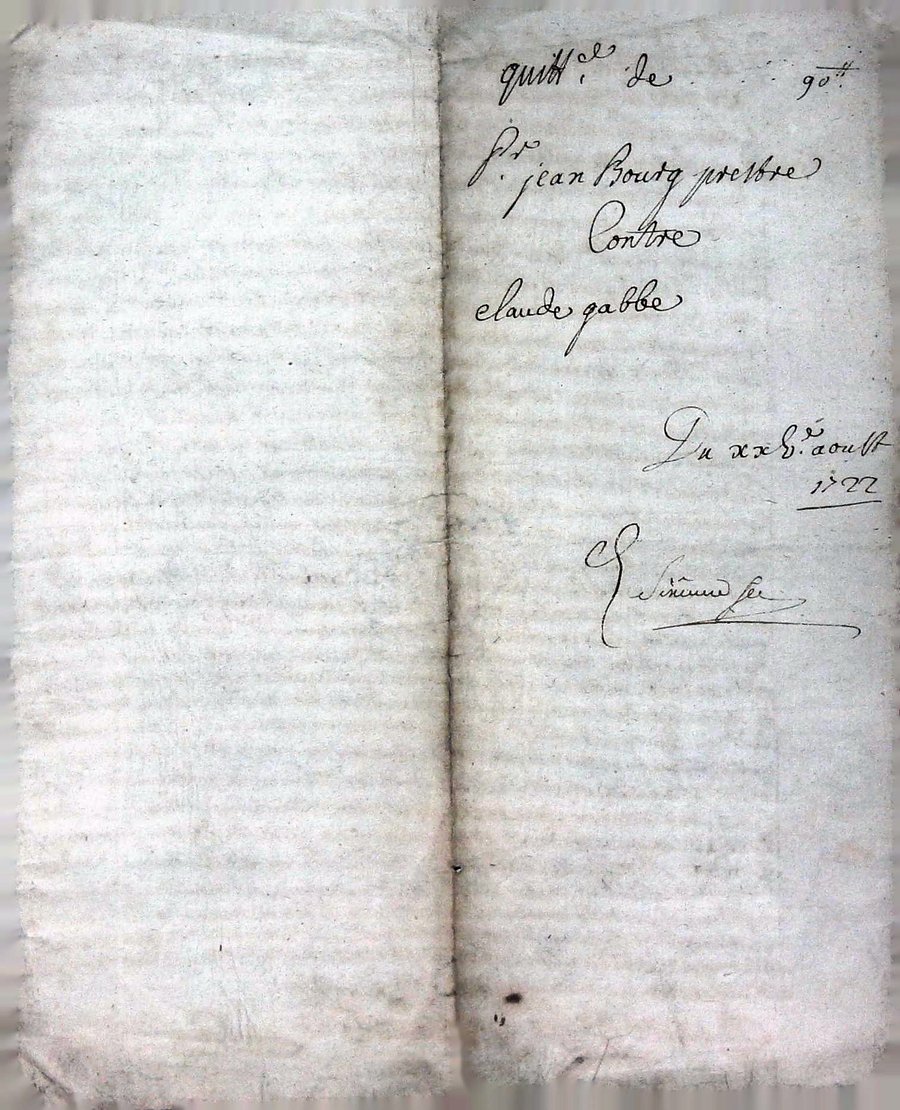 quitt.ce de 90tt
Sr jean Bourg prestre
Contre
claude gabbe
Du xxve aoust
1722